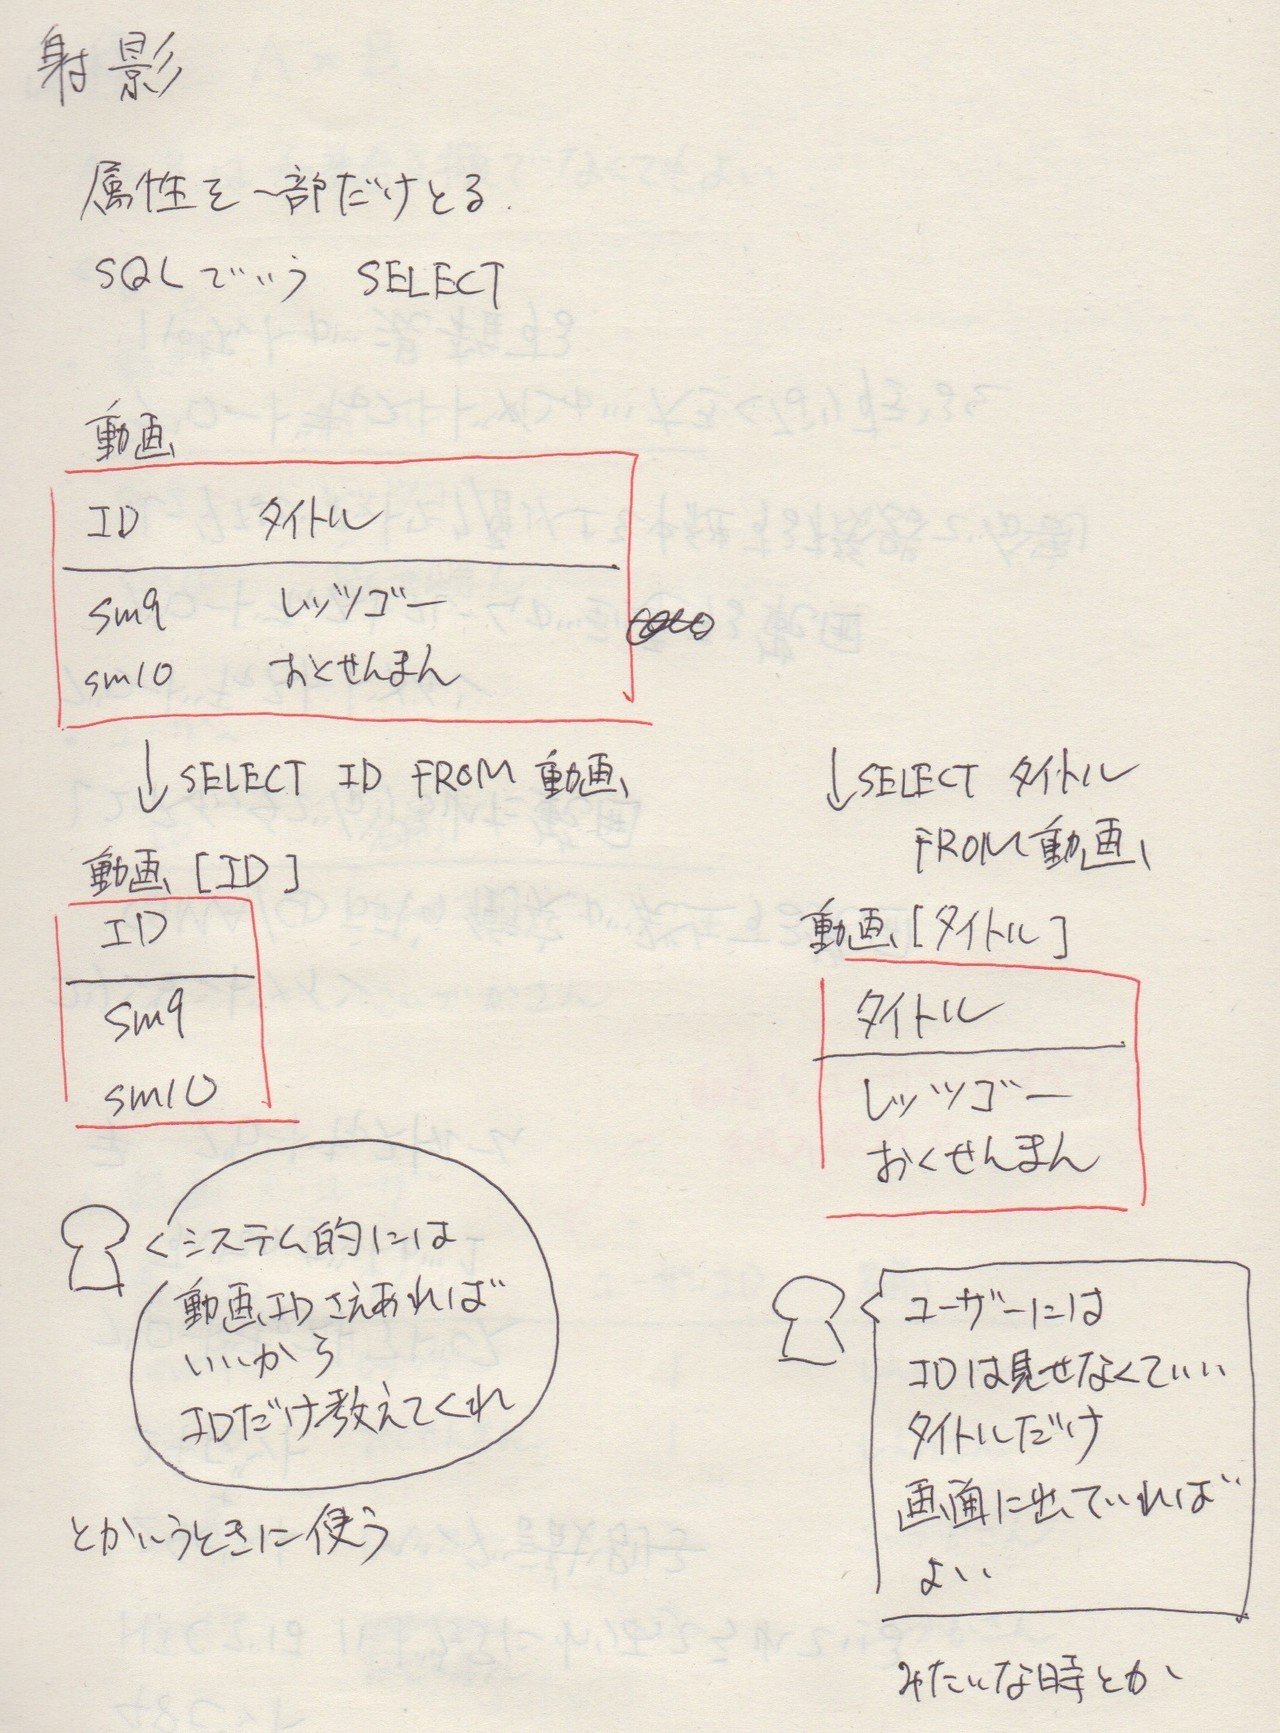 射影
属性を一部だけとる.
SQLでいう SELECT
動画
ID タイトル
sm9 レッツゴー
sm10 おくせんまん
↓SELECT ID FROM 動画
動画[ID]
ID
sm9
sm10
システム的には
動画IDさえあれば
いいから
IDだけ教えてくれ
とかいうときに使う
↓SELECT タイトル
FROM 動画
動画[タイトル]
タイトル
レッツゴー
おくせんまん
ユーザーには
IDは見せなくていい
タイトルだけ
画面に出ていれば
よい
みたいな時とか